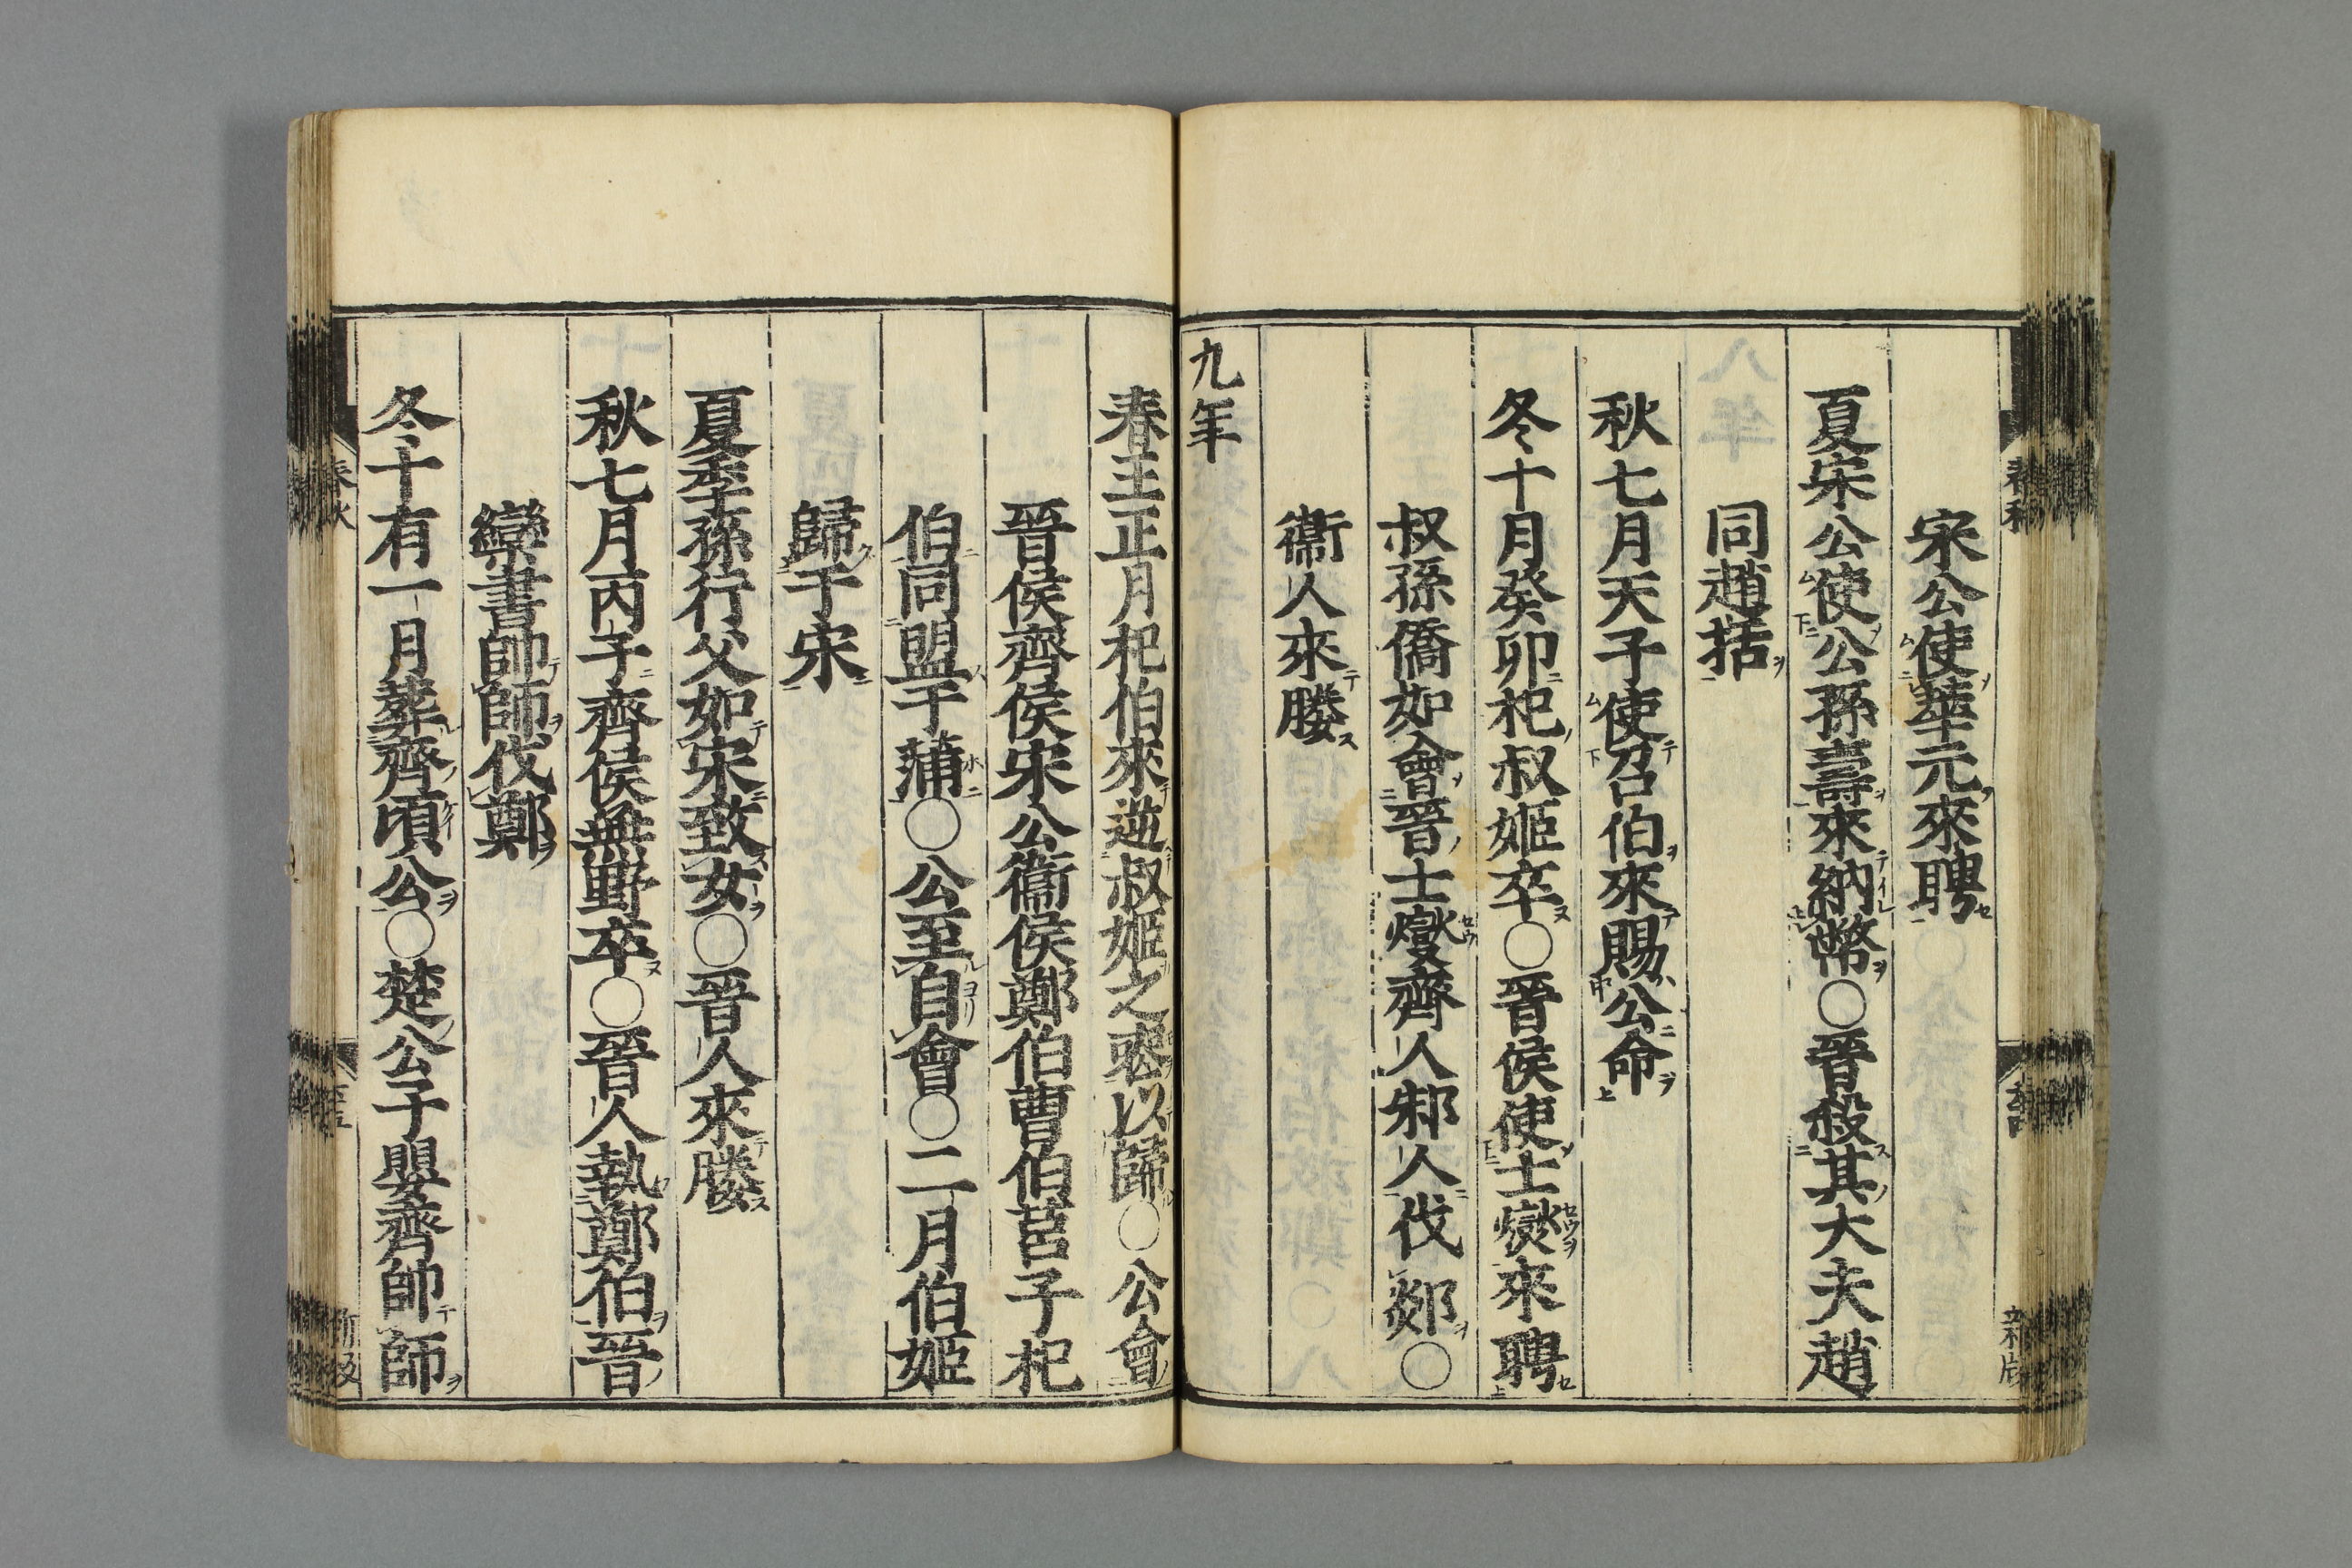 宋公使華元來聘
夏宋公使公孫壽來納幣○晉殺其大夫趙
同趙括
秋七月天子使召伯來賜公命
冬十月癸卯杞叔姬卒○晉侯使士燮來聘
叔孫僑如會晉士燮齊人邾人伐郯○
衞人來媵
九年
春王正月杞伯來逆叔姬之喪以歸○公會
晉侯齊侯宋公衞侯鄭伯曹伯莒子杞
伯同盟于蒲○公至自會○二月伯姬
歸于宋
夏季孫行父如宋致女○晉人來媵
秋七月丙子齊侯無野卒○晉人執鄭伯晉
欒書帥師伐鄭
冬十有一月葬齊頃公○楚公子嬰齊帥師
春秋